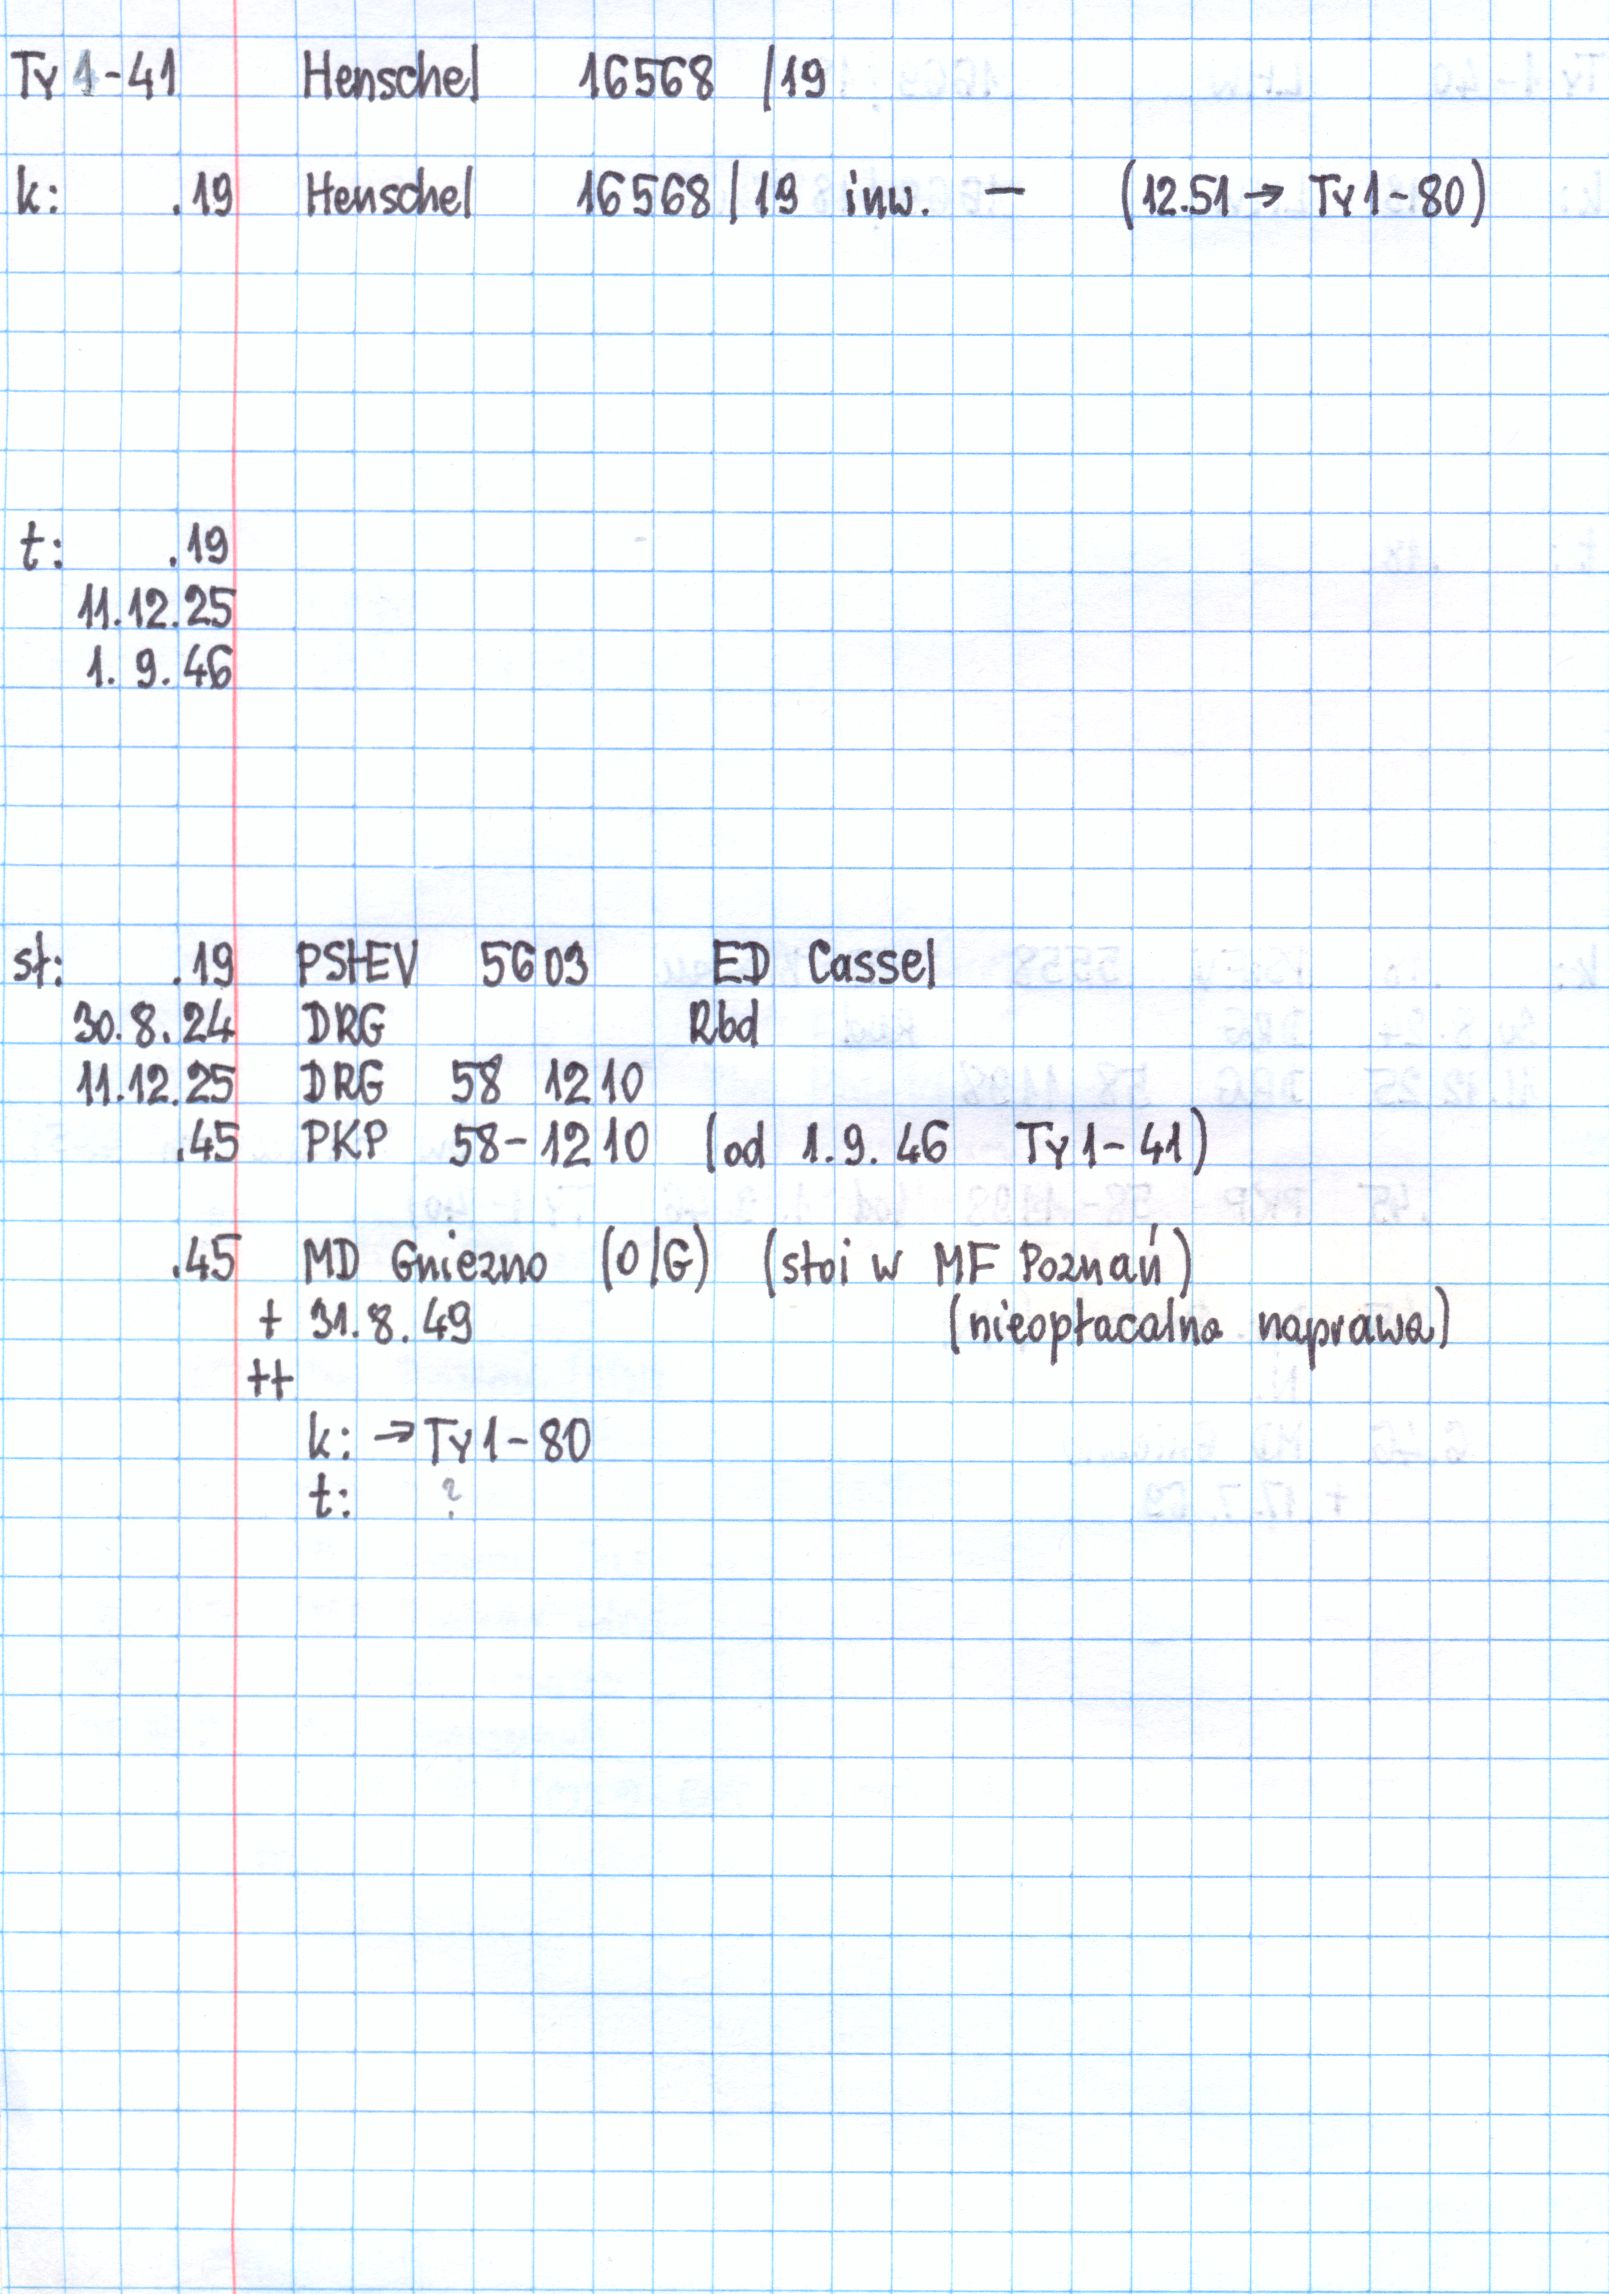 Ty1-41 Henschel 16568 /19
k: .19 Henschel 16568/19 inw. — (12.51 → Ty1-80)
t: .19
11.12.25
1. 9. 46
st: .19 PStEV 5603 ED Cassel
30.8.24 DRG Rbd
11.12.25 DRG 58 1210
.45 PKP 58-1210 (od 1.9.46 Ty1-41)
.45 MD Gniezno (O/G) (stoi w MF Poznań)
+ 31.8.49 (nieopłacalna naprawa)
++
k: → Ty1-80
t: ?